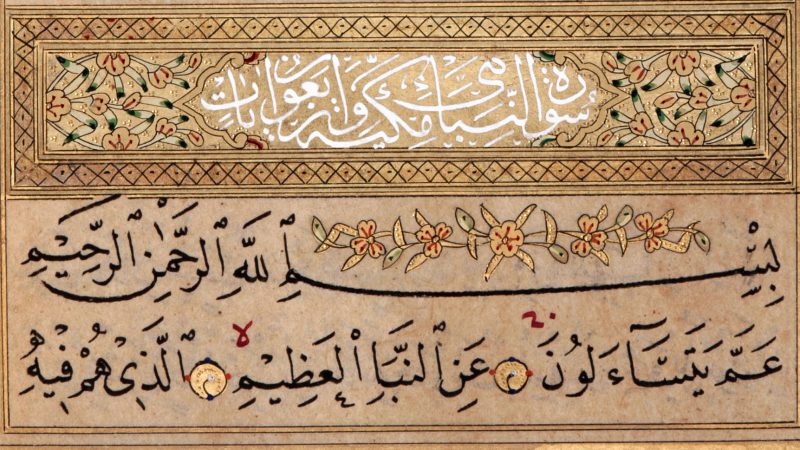 سورة النبأ مكية وهي أربعون آيات
بِسْمِ ٱللَّهِ ٱلرَّحْمَٰنِ ٱلرَّحِيمِ
عَمَّ يَتَسَآءَلُونَ عَنِ ٱلنَّبَإِ ٱلْعَظِيمِ ٱلَّذِى هُمْ فِيهِ